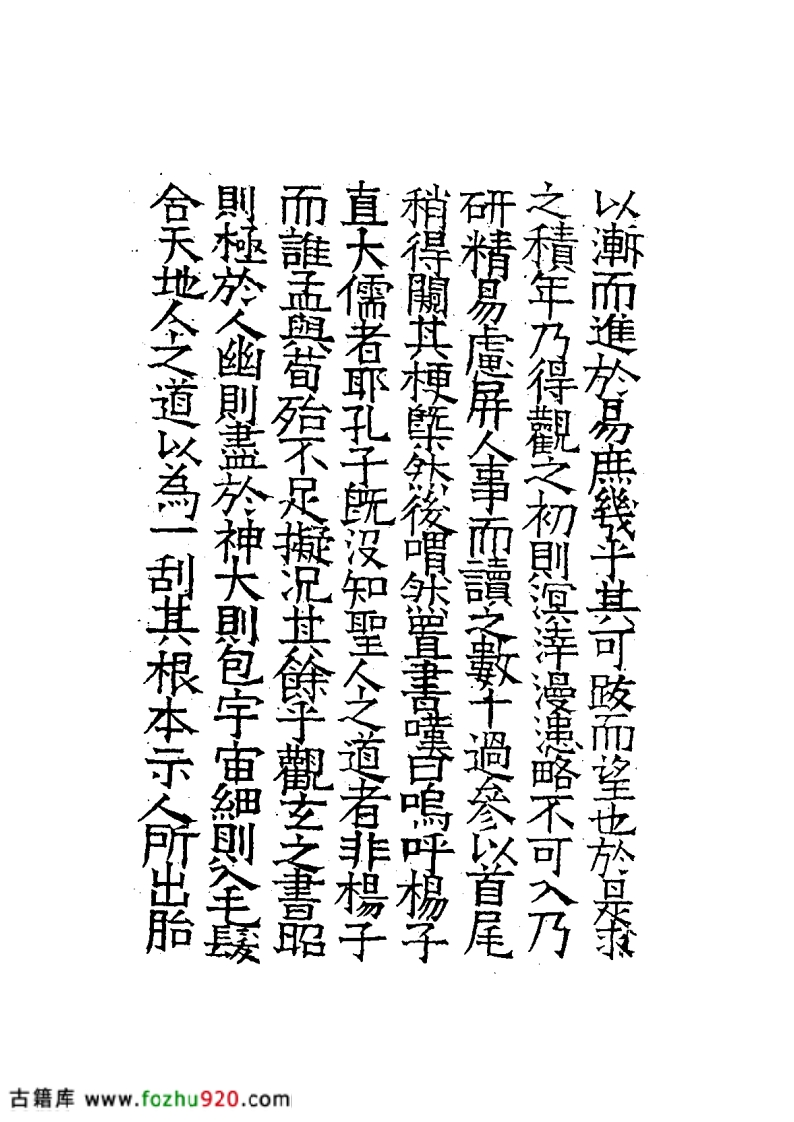 以漸而進於易庶幾乎其可跂而望也於是求
之積年乃得觀之初則溟涬漫漶略不可入乃
研精易慮屏人事而讀之數十過參以首尾
稍得闚其梗槩然後喟然置書嘆曰嗚呼楊子
直大儒者耶孔子旣沒知聖人之道者非楊子
而誰孟與荀殆不足擬况其餘乎觀玄之書昭
則極於人幽則盡於神大則包宇宙細則入毛髮
合天地人之道以為一刮其根本示人所出胎
古籍库 www.fozhu920.com